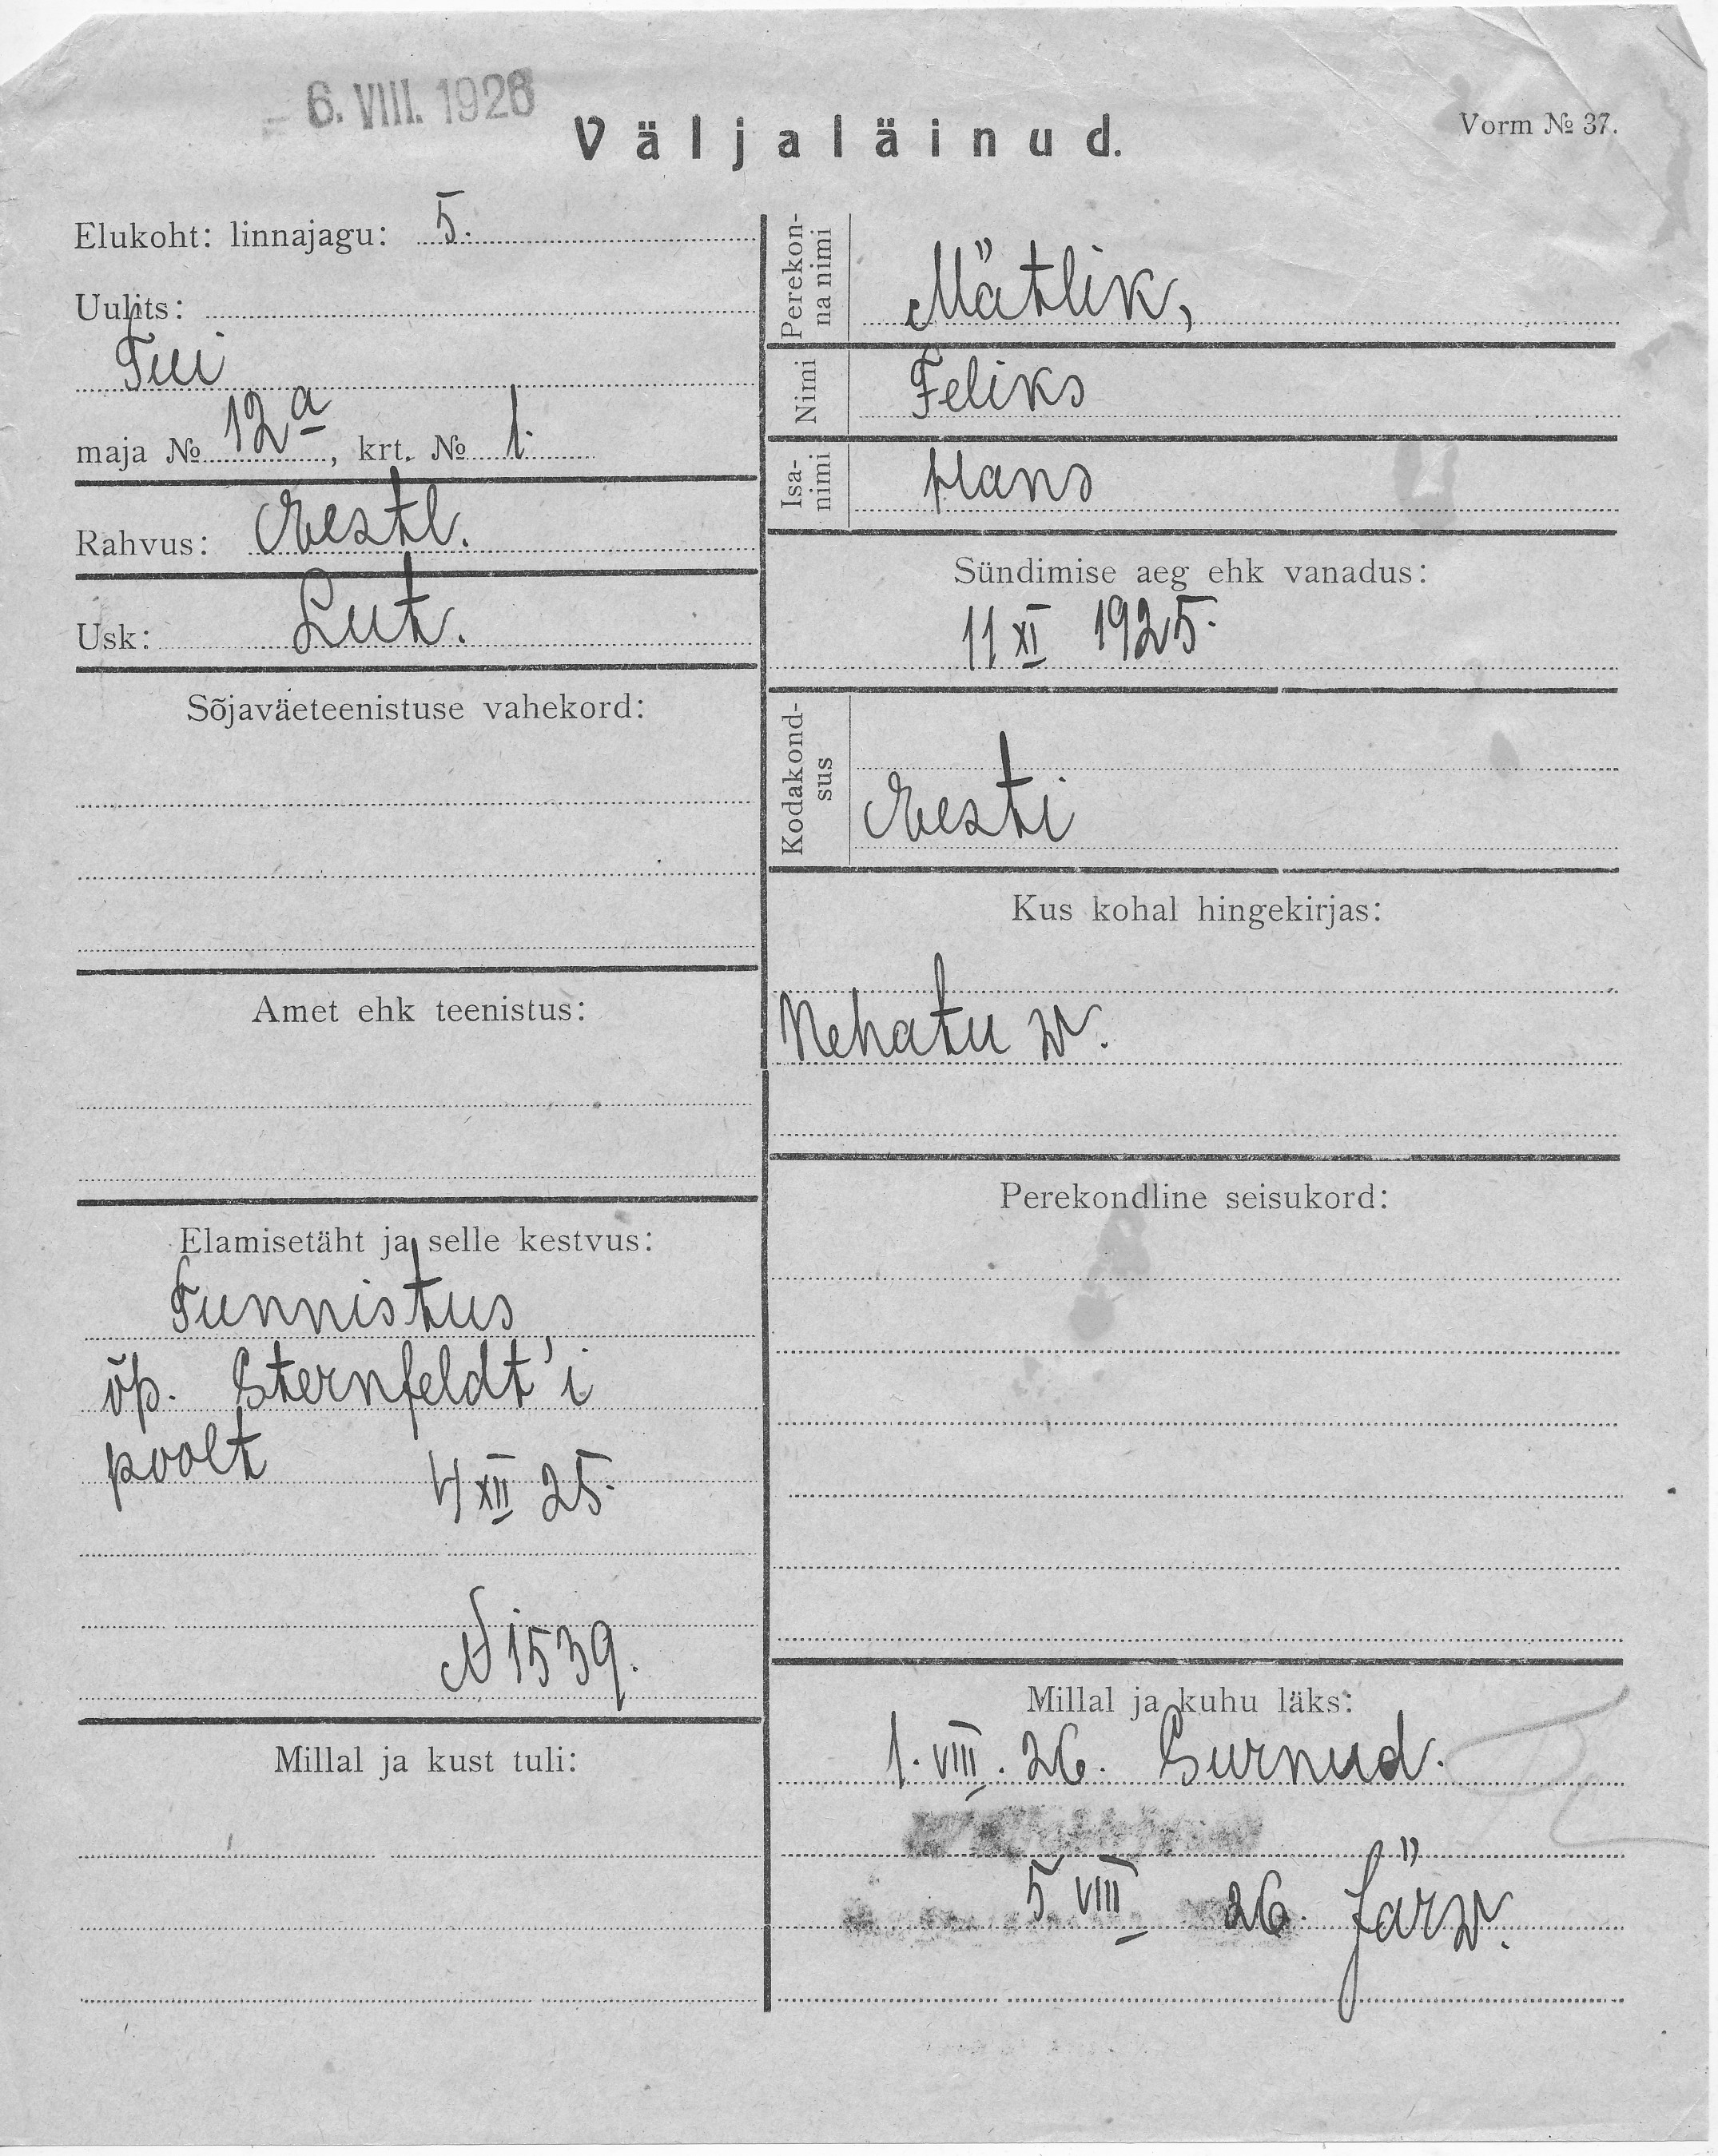 6. VIII. 1926
Väljaläinud.
Vorm № 37.
Elukoht: linnajagu: 5.
Uulits:
Tui
maja № 12a, krt. № 1.
Rahvus: Eestl.
Usk: Lut.
Sõjaväeteenistuse vahekord:
Amet ehk teenistus:
Elamisetäht ja selle kestvus:
Tunnistus
õp. Sternfeldt'i
poolt 4 XII 25.
N 1539.
Millal ja kust tuli:
Perekon-
na nimi
Mätlik,
Nimi
Feliks
Isa-
nimi
Hans
Sündimise aeg ehk vanadus:
11 XI 1925.
Kodakond-
sus
Eesti
Kus kohal hingekirjas:
Nehatu w.
Perekondline seisukord:
Millal ja kuhu läks:
1. VIII. 26. Surnud.
5 VIII 26. Järw.